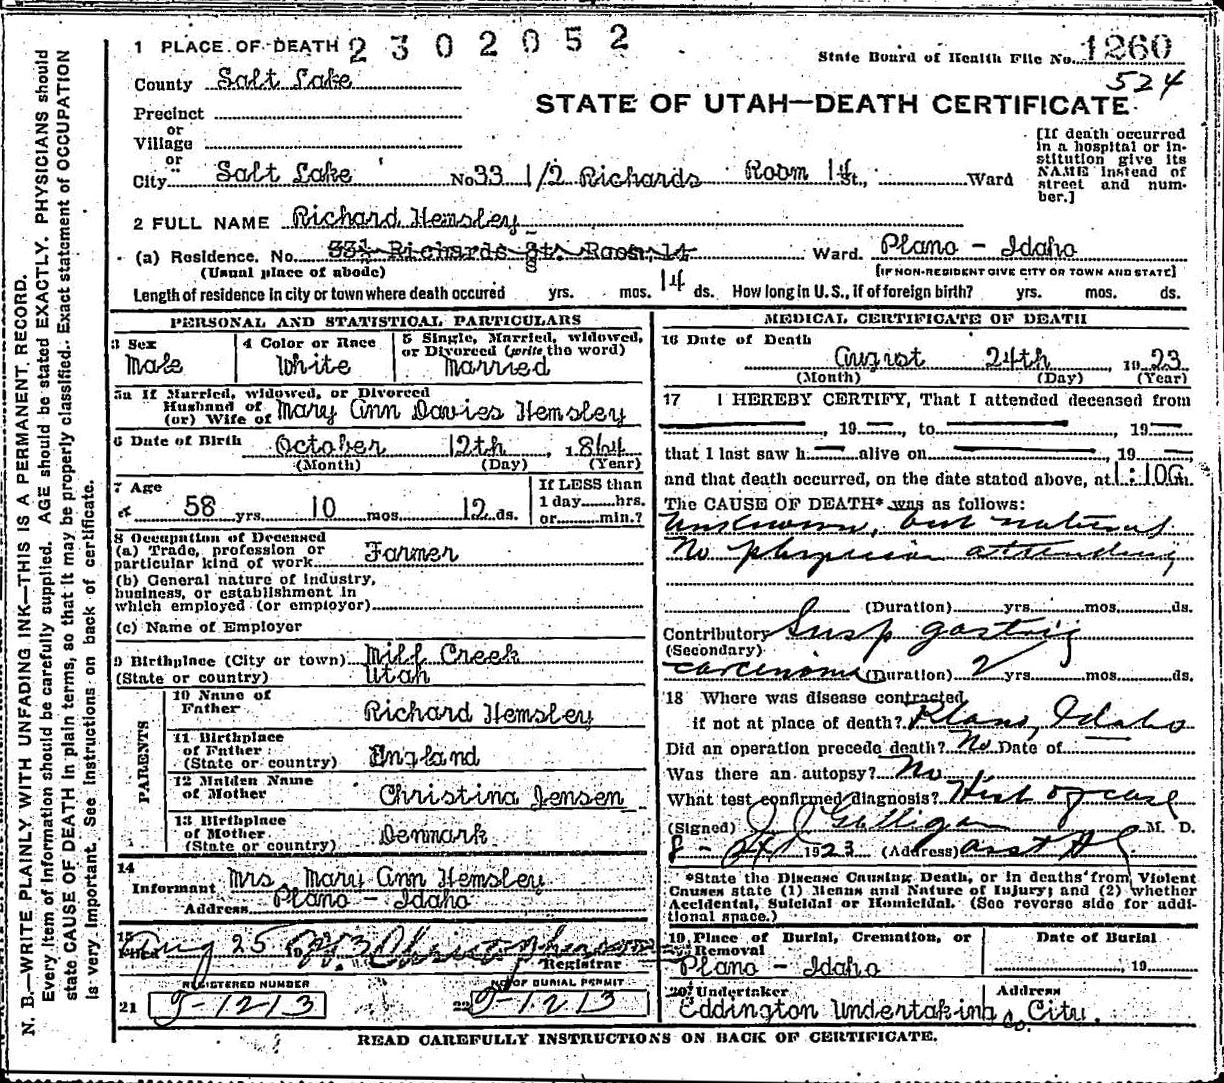 1 PLACE OF DEATH 2302052
State Board of Health File No. 1260
524
County Salt Lake
STATE OF UTAH—DEATH CERTIFICATE
Precinct
or
Village
or
City Salt Lake No 33 1/2 Richards Room 14 St., Ward
[If death occurred
in a hospital or in-
stitution give its
NAME instead of
street and num-
ber.]
2 FULL NAME Richard Hemsley
(a) Residence. No. 33½ Richards St. Room 14 Ward. Plano - Idaho
(Usual place of abode) [IF NON-RESIDENT GIVE CITY OR TOWN AND STATE]
Length of residence in city or town where death occured yrs. mos. 14 ds. How long in U. S., if of foreign birth? yrs. mos. ds.
PERSONAL AND STATISTICAL PARTICULARS
3 Sex
Male
4 Color or Race
White
5 Single, Married, widowed,
or Divorced (write the word)
Married
5a If Married, widowed, or Divorced
Husband of
(or) Wife of Mary Ann Davies Hemsley
6 Date of Birth October 12th, 1864
(Month) (Day) (Year)
7 Age
58 yrs. 10 mos. 12 ds.
If LESS than
1 day hrs.
or min.?
8 Occupation of Deceased
(a) Trade, profession or
particular kind of work Farmer
(b) General nature of industry,
business, or establishment in
which employed (or employer)
(c) Name of Employer
9 Birthplace (City or town) Mill Creek
(State or country) Utah
PARENTS
10 Name of
Father Richard Hemsley
11 Birthplace
of Father
(State or country) England
12 Maiden Name
of Mother Christina Jensen
13 Birthplace
of Mother
(State or country) Denmark
14
Informant Mrs Mary Ann Hemsley
Address Plano - Idaho
15
Filed Aug 25
Registrar
REGISTERED NUMBER
21 9-1213
NO. OF BURIAL PERMIT
22 9-1213
MEDICAL CERTIFICATE OF DEATH
16 Date of Death
August 24th 1923
(Month) (Day) (Year)
17 I HEREBY CERTIFY, That I attended deceased from
, 19 , to , 19
that I last saw h alive on , 19
and that death occurred, on the date stated above, at 1:10 a m.
The CAUSE OF DEATH* was as follows:
Unknown, but natural
No physician attending
(Duration) yrs. mos. ds.
Contributory Susp gastric
(Secondary)
carcinoma (Duration) 2 yrs. mos. ds.
18 Where was disease contracted
if not at place of death? Plano, Idaho
Did an operation precede death? No Date of
Was there an autopsy? No
What test confirmed diagnosis? Hist of case
(Signed) J J Galligan M. D.
8-24 1923 (Address) asst
*State the Disease Causing Death, or in deaths from Violent
Causes state (1) Means and Nature of Injury; and (2) whether
Accidental, Suicidal or Homicidal. (See reverse side for addi-
tional space.)
19 Place of Burial, Cremation, or
Removal
Plano - Idaho
Date of Burial
, 19
20 Undertaker
Eddington Undertaking Co
Address
City.
READ CAREFULLY INSTRUCTIONS ON BACK OF CERTIFICATE.
N. B.—WRITE PLAINLY WITH UNFADING INK—THIS IS A PERMANENT RECORD.
Every item of information should be carefully supplied. AGE should be stated EXACTLY. PHYSICIANS should
state CAUSE OF DEATH in plain terms, so that it may be properly classified. Exact statement of OCCUPATION
is very important. See instructions on back of certificate.